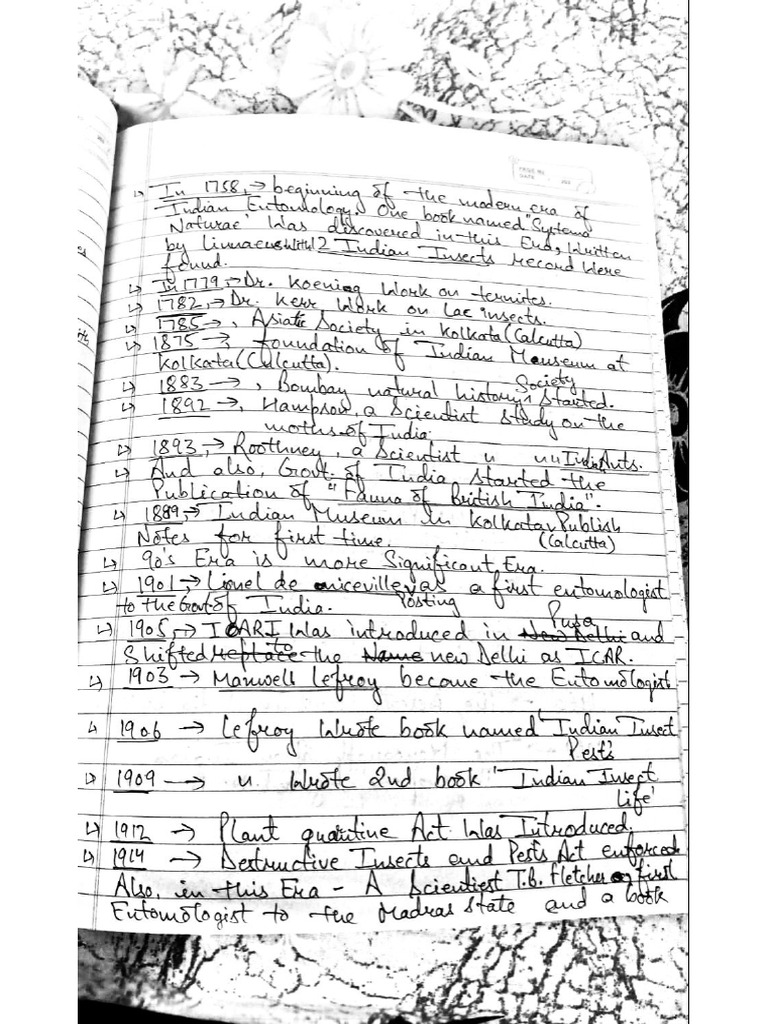 PAGE NO.
DATE
↳ In 1758, → beginning of the modern era of
Indian Entomology. One book named "Systema
Naturae' Was discovered in this Era, Written
by Linnaeus with 12 Indian Insects record Were
found.
↳ In 1779, → Dr. Koening Work on termites.
↳ 1782, → Dr. Kerr Work on Lac insects.
↳ 1785 → , Asiatic Society in Kolkata (Calcutta)
↳ 1875 → foundation of Indian Meuseum at
Kolkata (Culcutta).
↳ 1883 → , Bombay natural history Society Started.
↳ 1892 → , Hampson, a Scientist study on the
moths of India.
↳ 1893, → Roothney, a Scientist u u u Indian Ants.
↳ And also, Govt. of India started the
Publication of "Fauna of British India".
↳ 1889, → Indian Museum in Kolkata Publish
Notes for first time. (Calcutta)
↳ 90's Era is more Significant Era.
↳ 1901, → Lionel de niceville was a first entomologist
to the Govt. of India. Posting
↳ 1905, → ICARI Was introduced in New Delhi Pusa and
Shifted replace to the Name new Delhi as ICAR.
↳ 1903 → Manwell Lefroy become the Entomologist
↳ 1906 → Lefroy Wrote book named 'Indian Insect
Pests
↳ 1909 → u Wrote 2nd book 'Indian Insect
life'
↳ 1912 → Plant quaritine Act Was Introduced.
↳ 1914 → Destructive Insects and Pests Act enforced
Also, in this Era - A Scientiest T.B. Fletcher first
Entomologist to the Madras State and a book